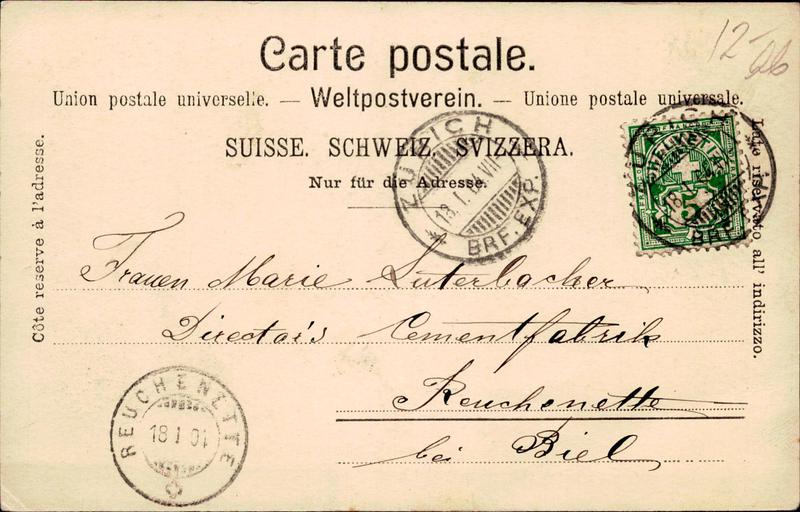 Carte postale.
12-
Union postale universelle. — Weltpostverein. — Unione postale universale.
SUISSE. SCHWEIZ. SVIZZERA.
Nur für die Adresse.
Côte reservé à l'adresse.
Lato riservato all' indirizzo.
ZÜRICH
18.I.04.VII
BRF. EXP.
HELVETIA
5
BRF.
Frauen Marie Luterbacher
Director's Cementfabrik
Reuchenette
bei Biel
REUCHENETTE
18 I 04